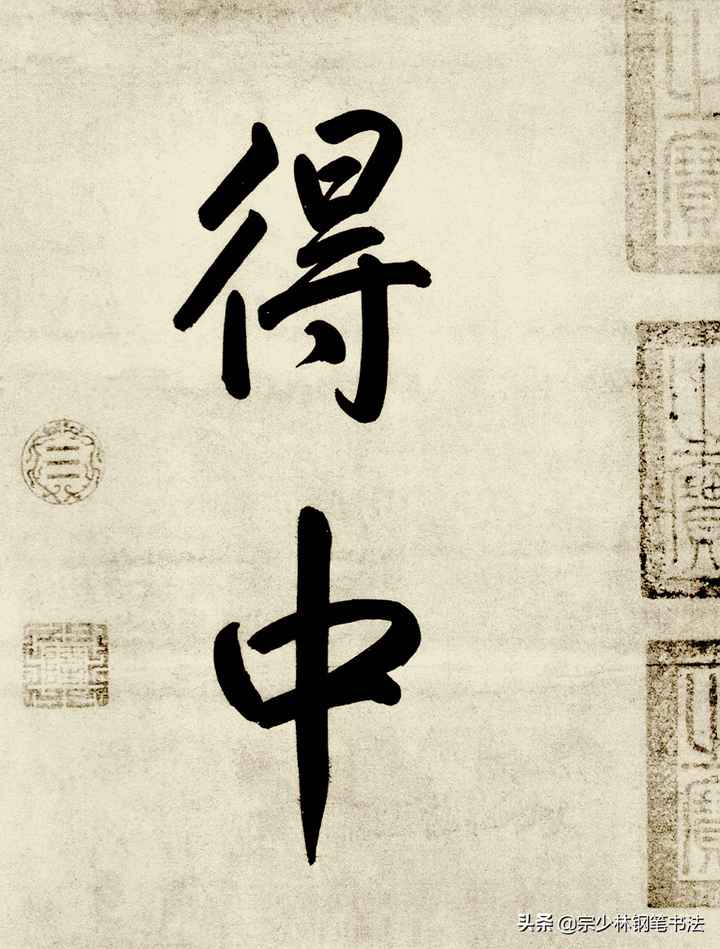 得
中
头条 @宗少林钢笔书法